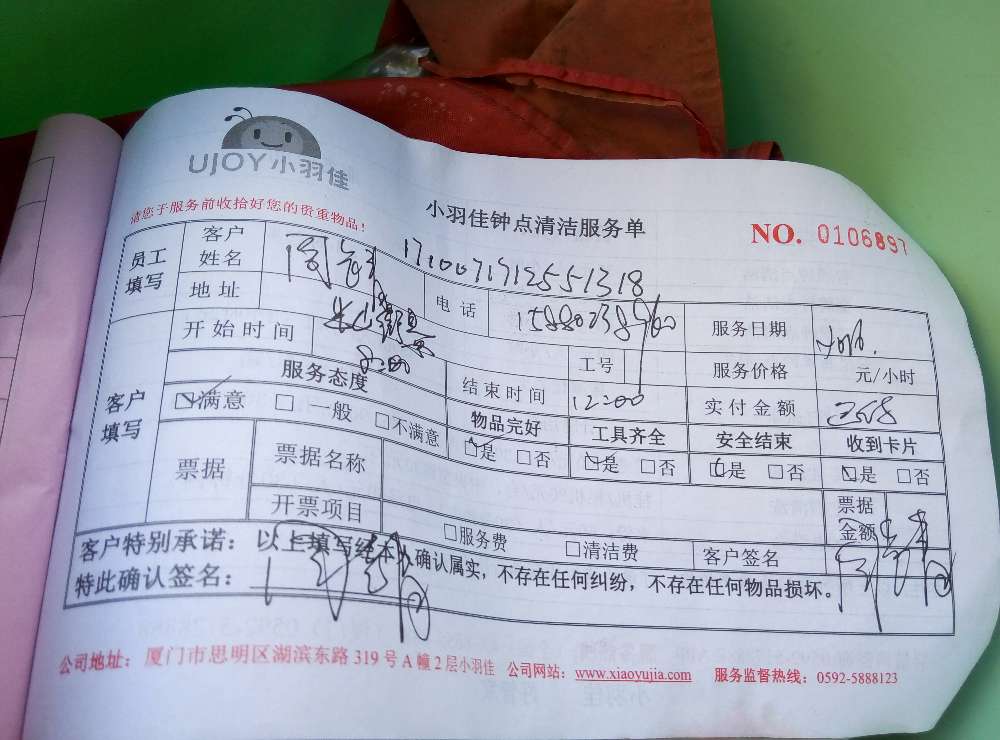 UJOY小羽佳
请您于服务前收拾好您的贵重物品！
小羽佳钟点清洁服务单
NO. 0106897
员工填写
客户姓名
地址
电话
服务日期
开始时间
8:00
工号
服务价格
元/小时
客户填写
服务态度
结束时间
12:00
实付金额
满意 一般 不满意
物品完好
工具齐全
安全结束
收到卡片
是 否 是 否 是 否 是 否
票据
票据名称
票据金额
开票项目
服务费 清洁费
客户签名
客户特别承诺：以上填写经本人确认属实，不存在任何纠纷，不存在任何物品损坏。
特此确认签名：
公司地址：厦门市思明区湖滨东路319号A幢2层小羽佳 公司网站：www.xiaoyujia.com 服务监督热线：0592-5888123